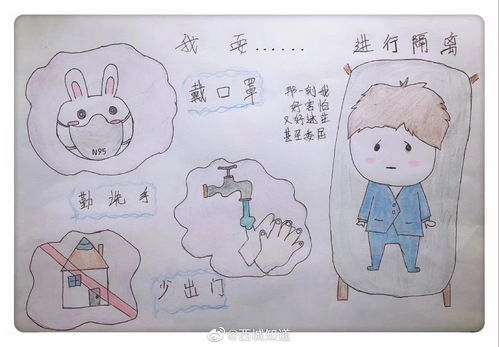 我要......
进行隔离
戴口罩
那一刻我
好害怕
又好迷茫
甚至委屈
N95
勤洗手
少出门
@西城知道